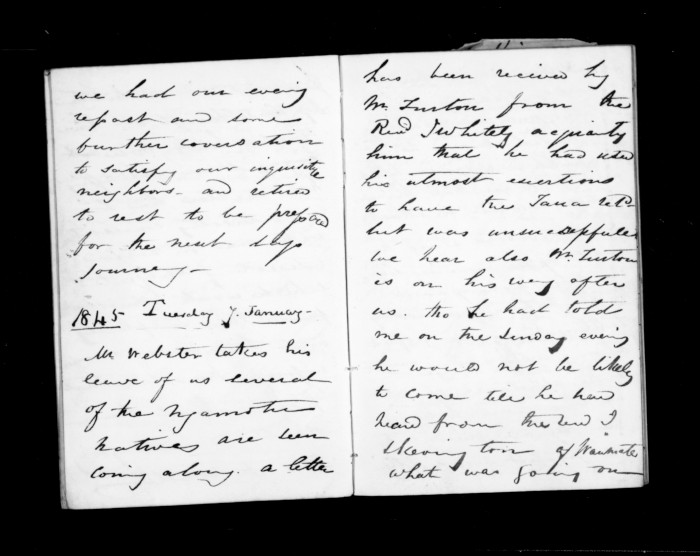 we had our evening
repast and some
further coversation
to satisfy our inquisitive
neighbors - and retired
to rest to be prepared
for the next days
Journey -
1845 Tuesday 7. January -
Mr Webster takes his
leave of us several
of the Ngamotu
natives are seen
coming along. a letter
has been recieved by
Mr. Turton from the
Revd J Whitely acquainty
him that he had used
his utmost exertions
to have the Taua retd
but was unsucessfull
we hear also Mr. Turton
is on his way after
us. tho he had told
me on the Sunday evening
he would not be likely
to come till he had
heard from the Revd J
Skevington of Waimate
what was going on